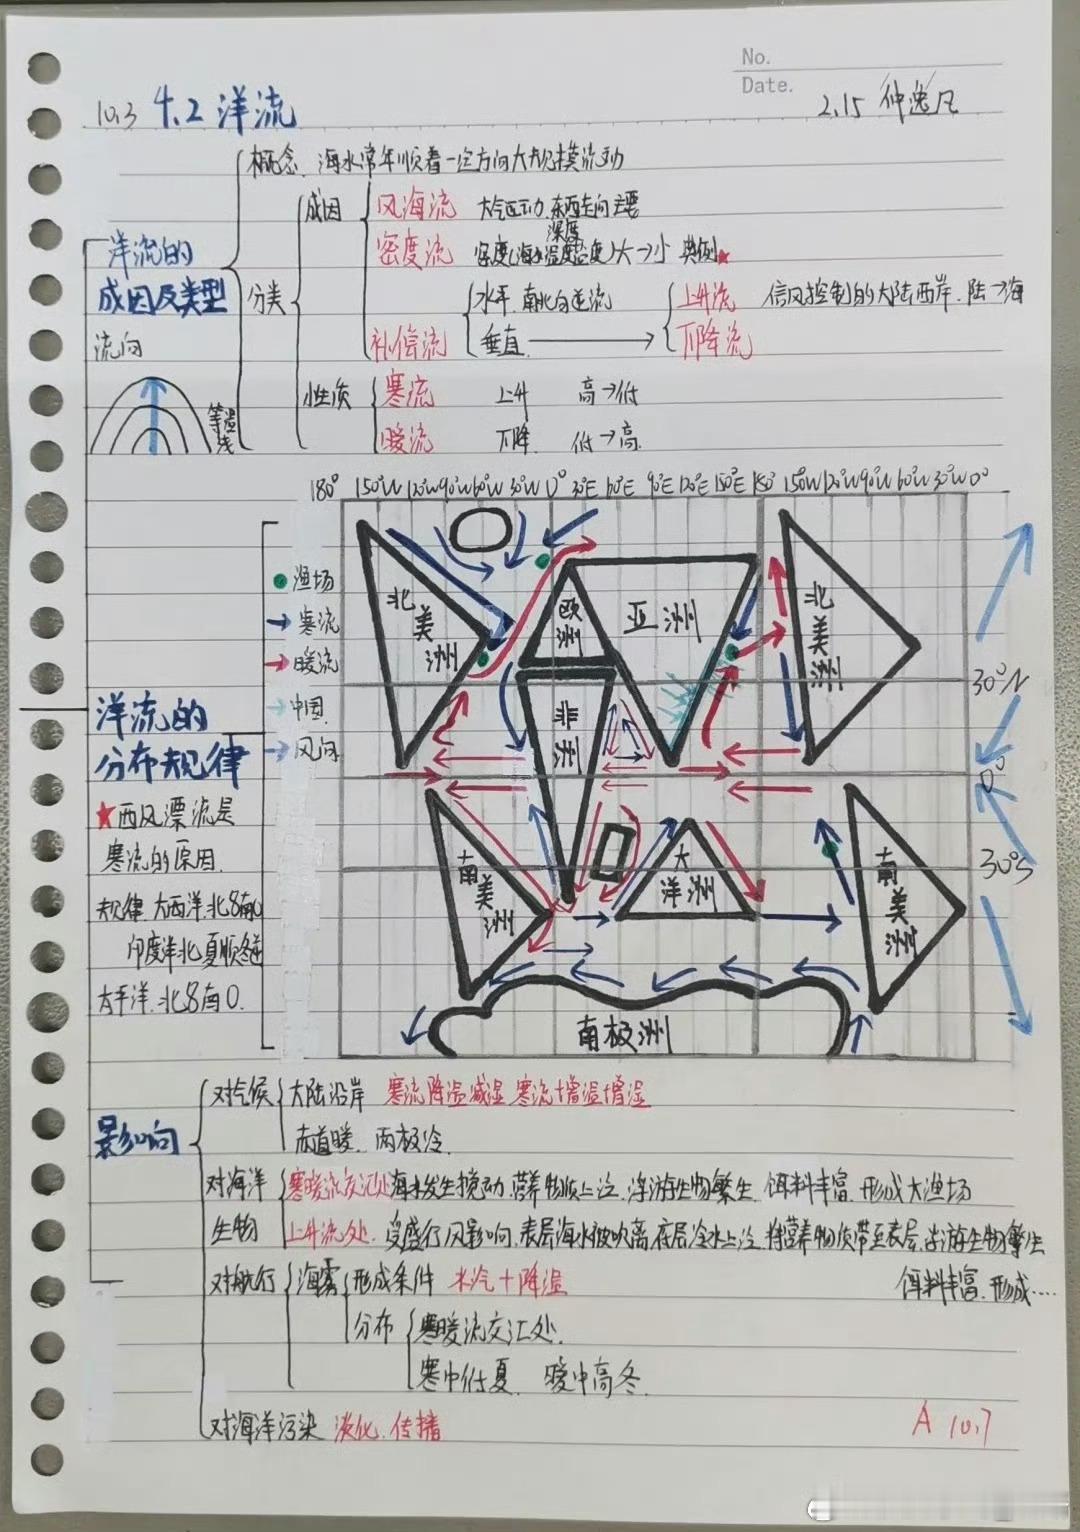 No.
Date.
10.3 4.2 洋流
2.15 仲逸凡
概念 海水常年顺着一定方向大规模流动
洋流的
成因及类型
分类
成因
风海流 大气运动,东西走向 主要
深度
密度流 密度(海水温度盐度)大→小 典例★
补偿流
水平 南北向逆流
垂直
上升流 信风控制的大陆西岸.陆→海
下降流
性质
寒流 上升 高→低
暖流 下降 低→高
流向
等温线
180° 150°W 120°W 90°W 60°W 30°W 0° 30°E 60°E 90°E 120°E 150°E 180° 150°W 120°W 90°W 60°W 30°W 0°
渔场
寒流
暖流
中国
风向
北美洲
欧洲
亚洲
北美洲
非洲
南美洲
大洋洲
南美洲
南极洲
30°N
0°
30°S
洋流的
分布规律
★西风漂流是
寒流的原因.
规律.大西洋.北8南0
印度洋北夏顺冬逆
太平洋.北8南0.
影响
对气候
大陆沿岸 寒流降温减湿 寒流+增温+增湿
赤道暖.两极冷.
对海洋
生物
寒暖流交汇处 海水发生搅动.营养物质上泛.浮游生物繁生.饵料丰富.形成大渔场
上升流处.受盛行风影响.表层海水被吹离.底层冷水上泛.将营养物质带至表层.浮游生物繁生
饵料丰富.形成....
对航行
海雾
形成条件 水汽+降温
分布
寒暖流交汇处.
寒中低夏 暖中高冬.
对海洋污染 淡化.传播
A 10.7